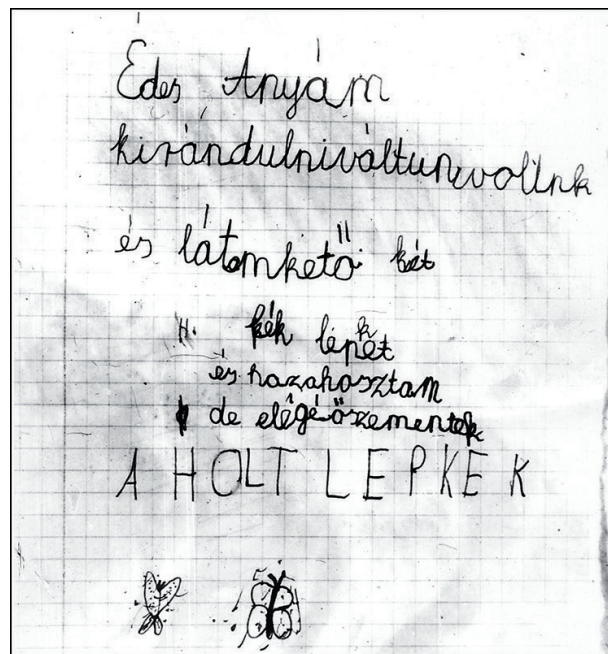 Édes Anyám
kirándulniváltunkvolünk
és látomkető két
kék lepket
és hazahosztam
de elégéőszementek
A HOLT LEPKEK